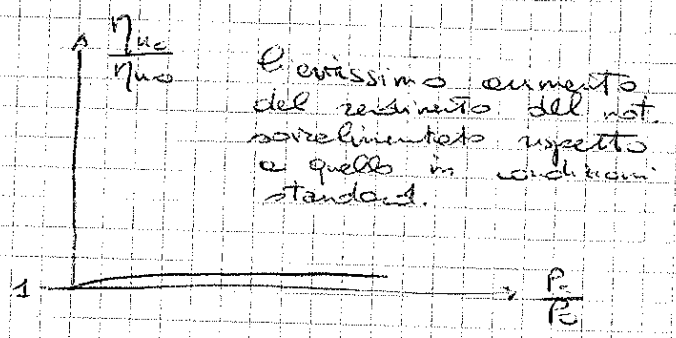 ηuc
ηuo
levissimo aumento
del rendimento del mot.
sovralimentato rispetto
a quello in condizioni
standard.
1
Pc
Po